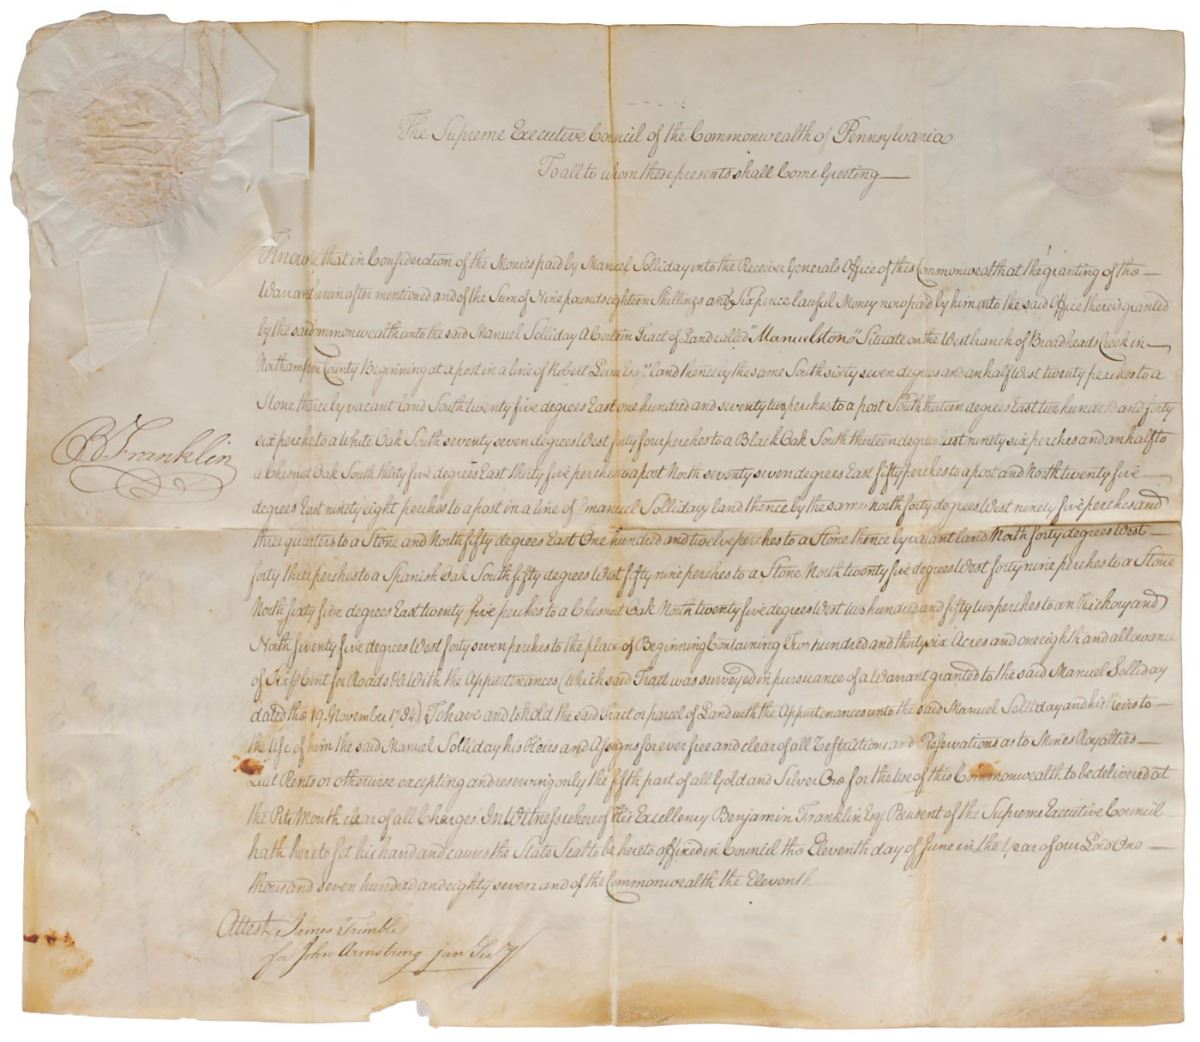 The Supreme Executive Council of the Commonwealth of Pennsylvania
To all to whom these presents shall Come Greeting
Know that in Consideration of the Monies paid by Manuel Solliday into the Receiver Generals Office of this Commonwealth at the granting of the
Warrant herein after mentioned and of the Sum of Nine pounds eighteen Shillings and Sixpence lawful Money now paid by him into the said Office there is granted
by the said mmonwealth unto the said Manuel Solliday A Certain Tract of Land called "Manuelston" Situate on the West branch of Broadheads Creek in
Northampton County Beginning at a post in a line of Robert Esqr. land thence by the same South sixty seven degrees and an half West twenty perches to a
Stone thence by vacant land South twenty five degrees East one hundred and seventy two perches to a post South thirteen degrees East two hundred and forty
six perches to a White Oak South seventy seven degrees West forty four perches to a Black Oak South thirteen degrees East ninety six perches and an half to
a Chesnut Oak South thirty five degrees East thirty five perches to a post North seventy seven degrees East fifty perches to a post and North twenty five
degrees East ninety eight perches to a post in a line of Emanuel Solliday land thence by the same North forty degrees West ninety five perches and
three quarters to a Stone and North fifty degrees East One hundred and twelve perches to a Stone thence by vacant land North forty degrees West
forty three perches to a Spanish Oak South fifty degrees West fifty nine perches to a Stone North twenty five degrees West forty nine perches to a Stone
North sixty five degrees East twenty five perches to a Chesnut Oak North twenty five degrees West two hundred and fifty two perches to an Hickory and
North seventy five degrees West forty seven perches to the place of Beginning Containing Two hundred and thirty six Acres and one eighth and allowance
of Six P Cent for Roads &c With the Appurtenances (Which said Tract was surveyed in pursuance of a Warrant granted to the said Manuel Solliday
dated the 19 November 1784) To have and to hold the said Tract or parcel of Land with the Appurtenances unto the said Manuel Solliday and his Heirs to
the Use of him the said Manuel Solliday his Heirs and Assigns for ever free and clear of all Restrictions and Reservations as to Mines Royalties
Quit Rents or otherwise excepting and reserving only the fifth part of all Gold and Silver Ore for the Use of this Commonwealth to be delivered at
the Pits Mouth clear of all Charges. In Witness whereof His Excellency Benjamin Franklin Esq President of the Supreme Executive Council
hath hereto set his hand and caused the State Seal to be hereto affixed in Council the Eleventh day of June in the Year of our Lord One
thousand seven hundred and eighty seven and of the Commonwealth the Eleventh
B Franklin
Attest James Trimble
for John Armstrong jun Secy